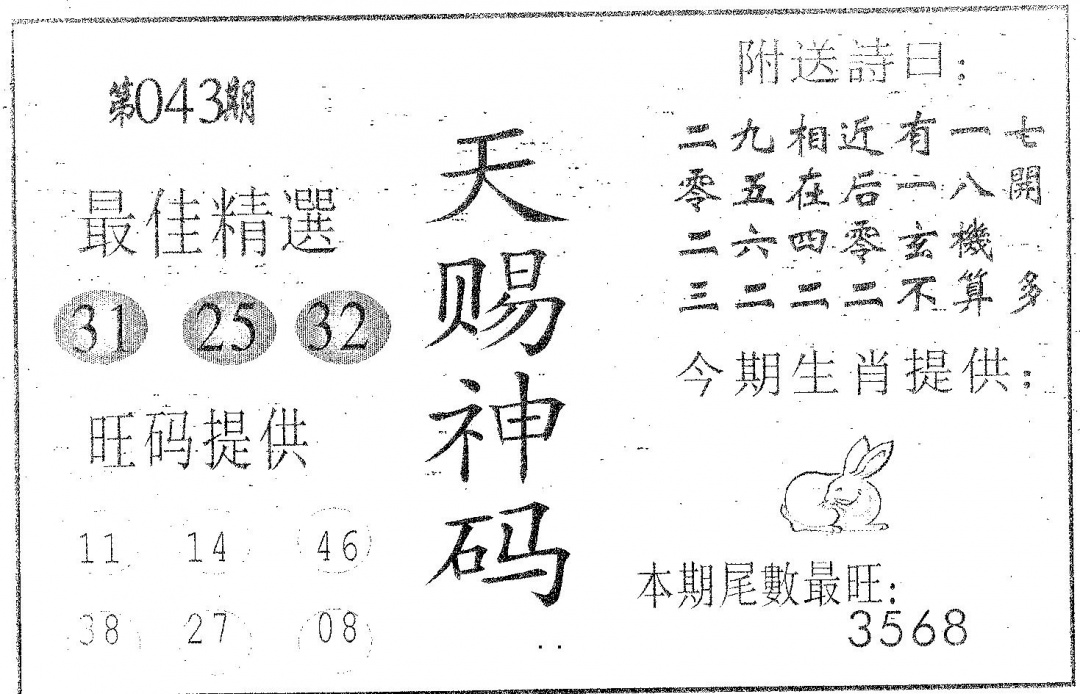 第043期
最佳精選
31 25 32
旺码提供
11 14 46
38 27 08
天赐神码
附送詩曰：
二九相近有一七
零五在后一八開
二六四零玄機
三二二二不算多
今期生肖提供：
本期尾數最旺：
3568